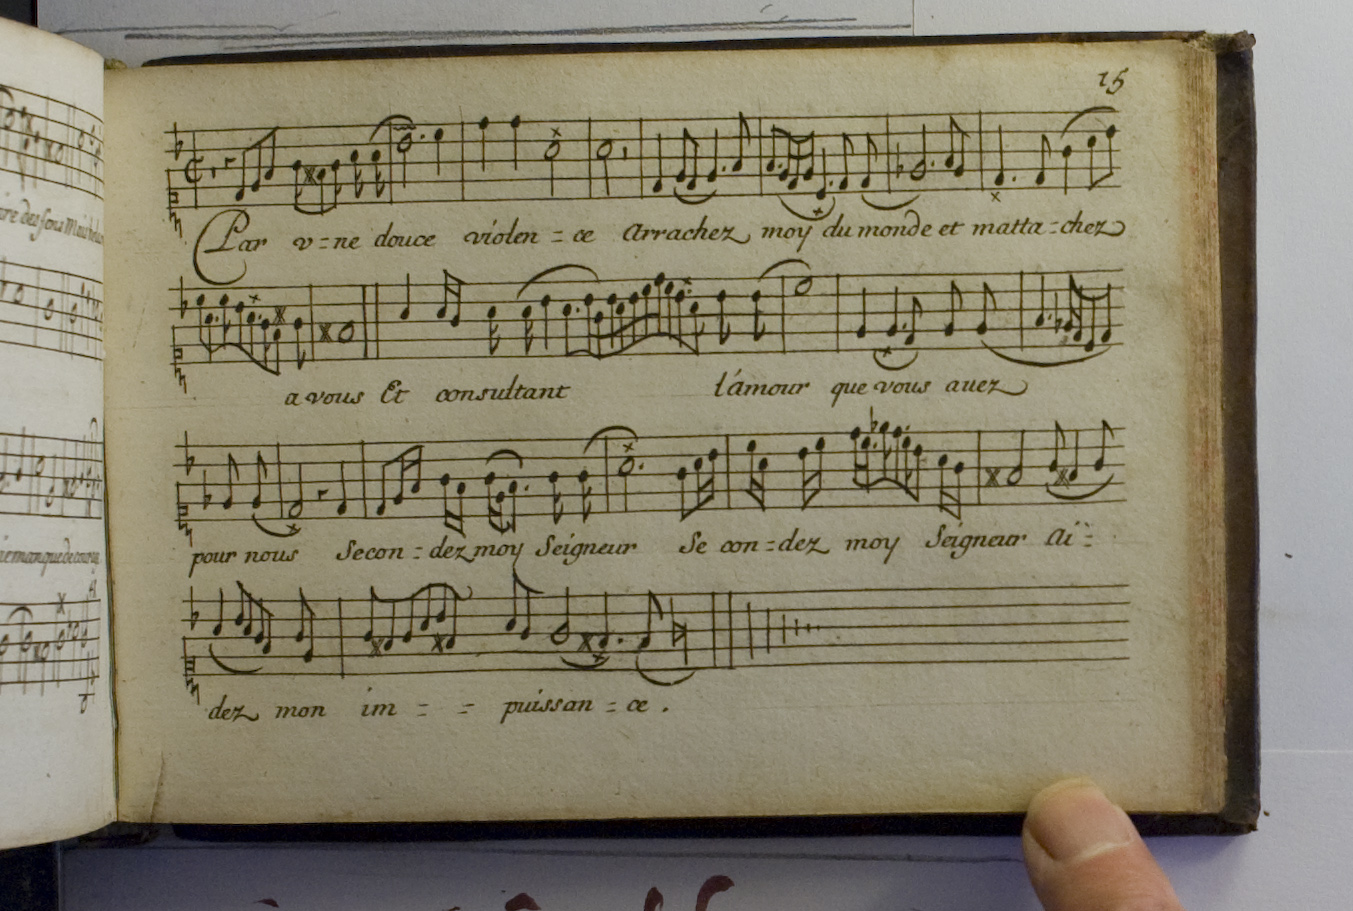 15
Par v=ne douce violen=ce Arrachez moy du monde et matta=chez
a vous Et consultant l'amour que vous auez
pour nous Secon=dez moy Seigneur Se con=dez moy Seigneur Ai=
dez mon im= = puissan=ce.